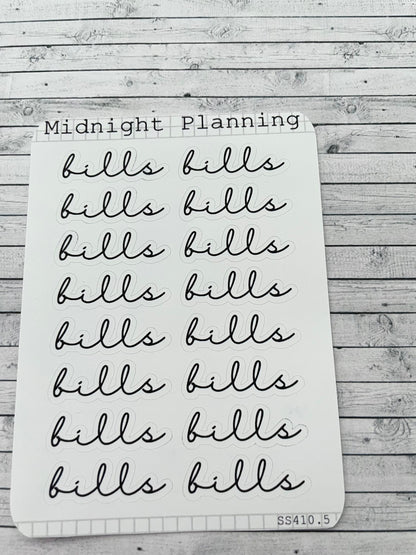 Midnight Planning
bills bills
bills bills
bills bills
bills bills
bills bills
bills bills
bills bills
bills bills
SS410.5